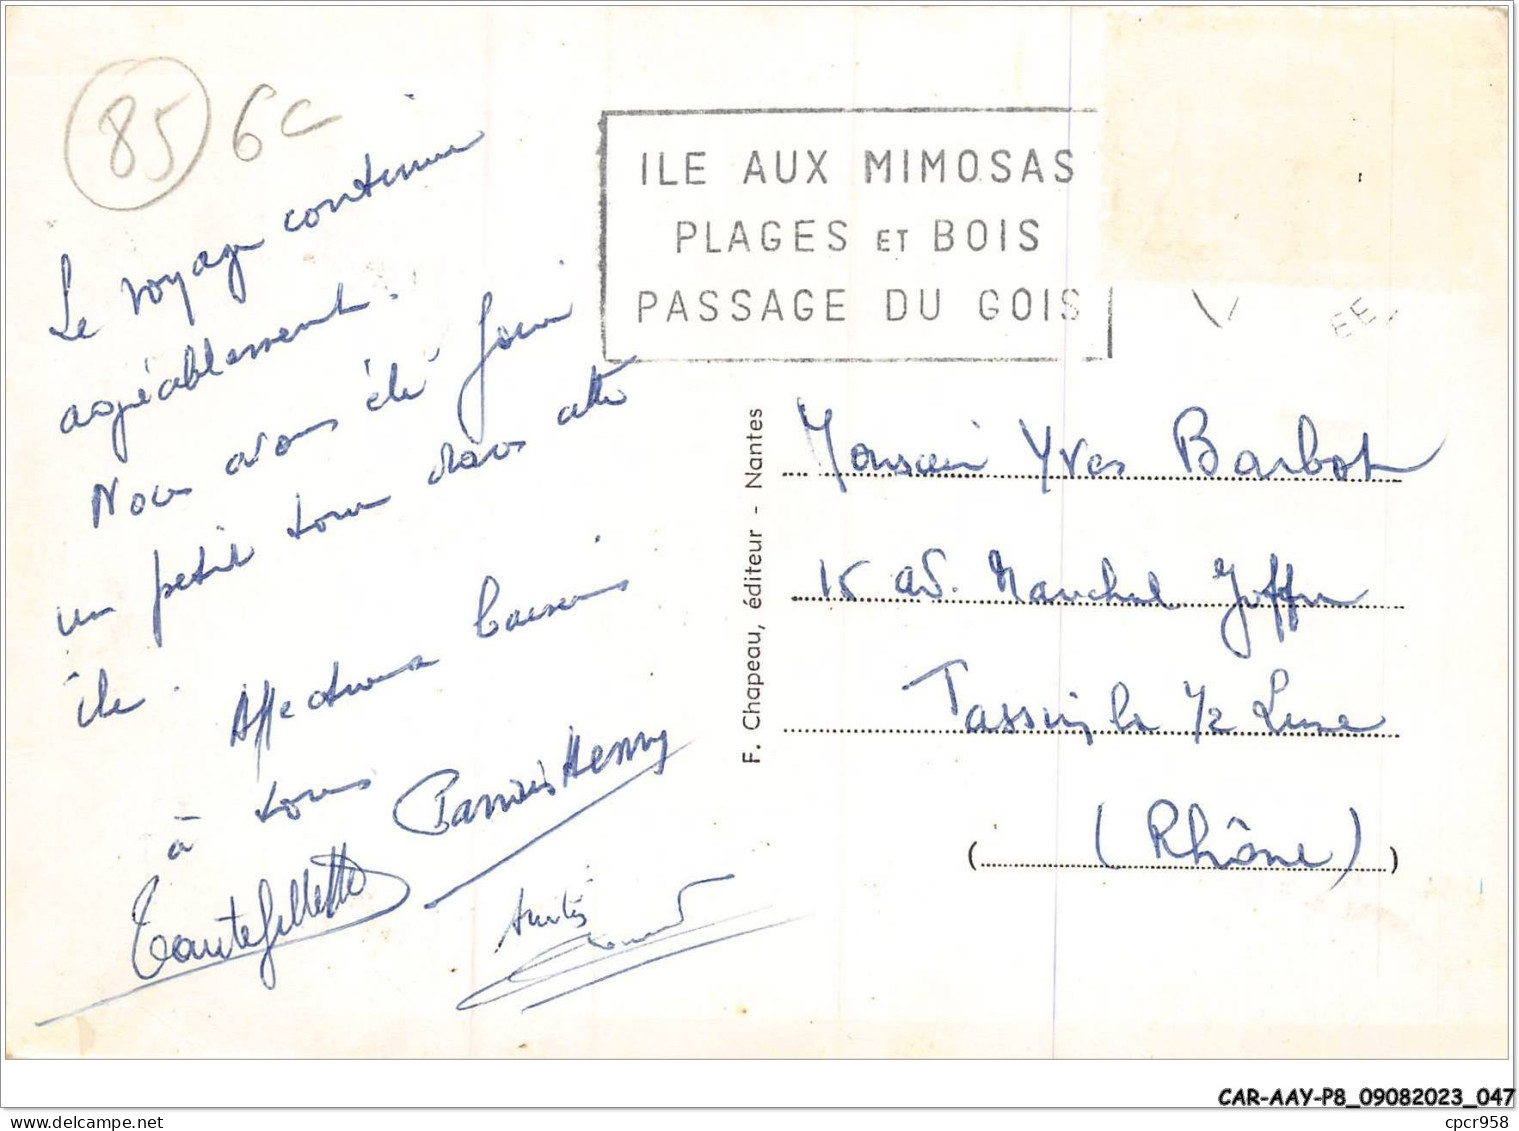 85 6c
Le voyage continue
agréablement.
Nous avons été faire
un petit tour dans cette
île.
Affectueux baisers
à tous
Henry
Amitiés
ILE AUX MIMOSAS
PLAGES ET BOIS
PASSAGE DU GOIS
EE
F. Chapeau, éditeur - Nantes
Monsieur Yves Barbot
15 av. Maréchal Joffre
Tassin la 1/2 Lune
(Rhône)
CAR-AAY-P8_09082023_047
cpcr958